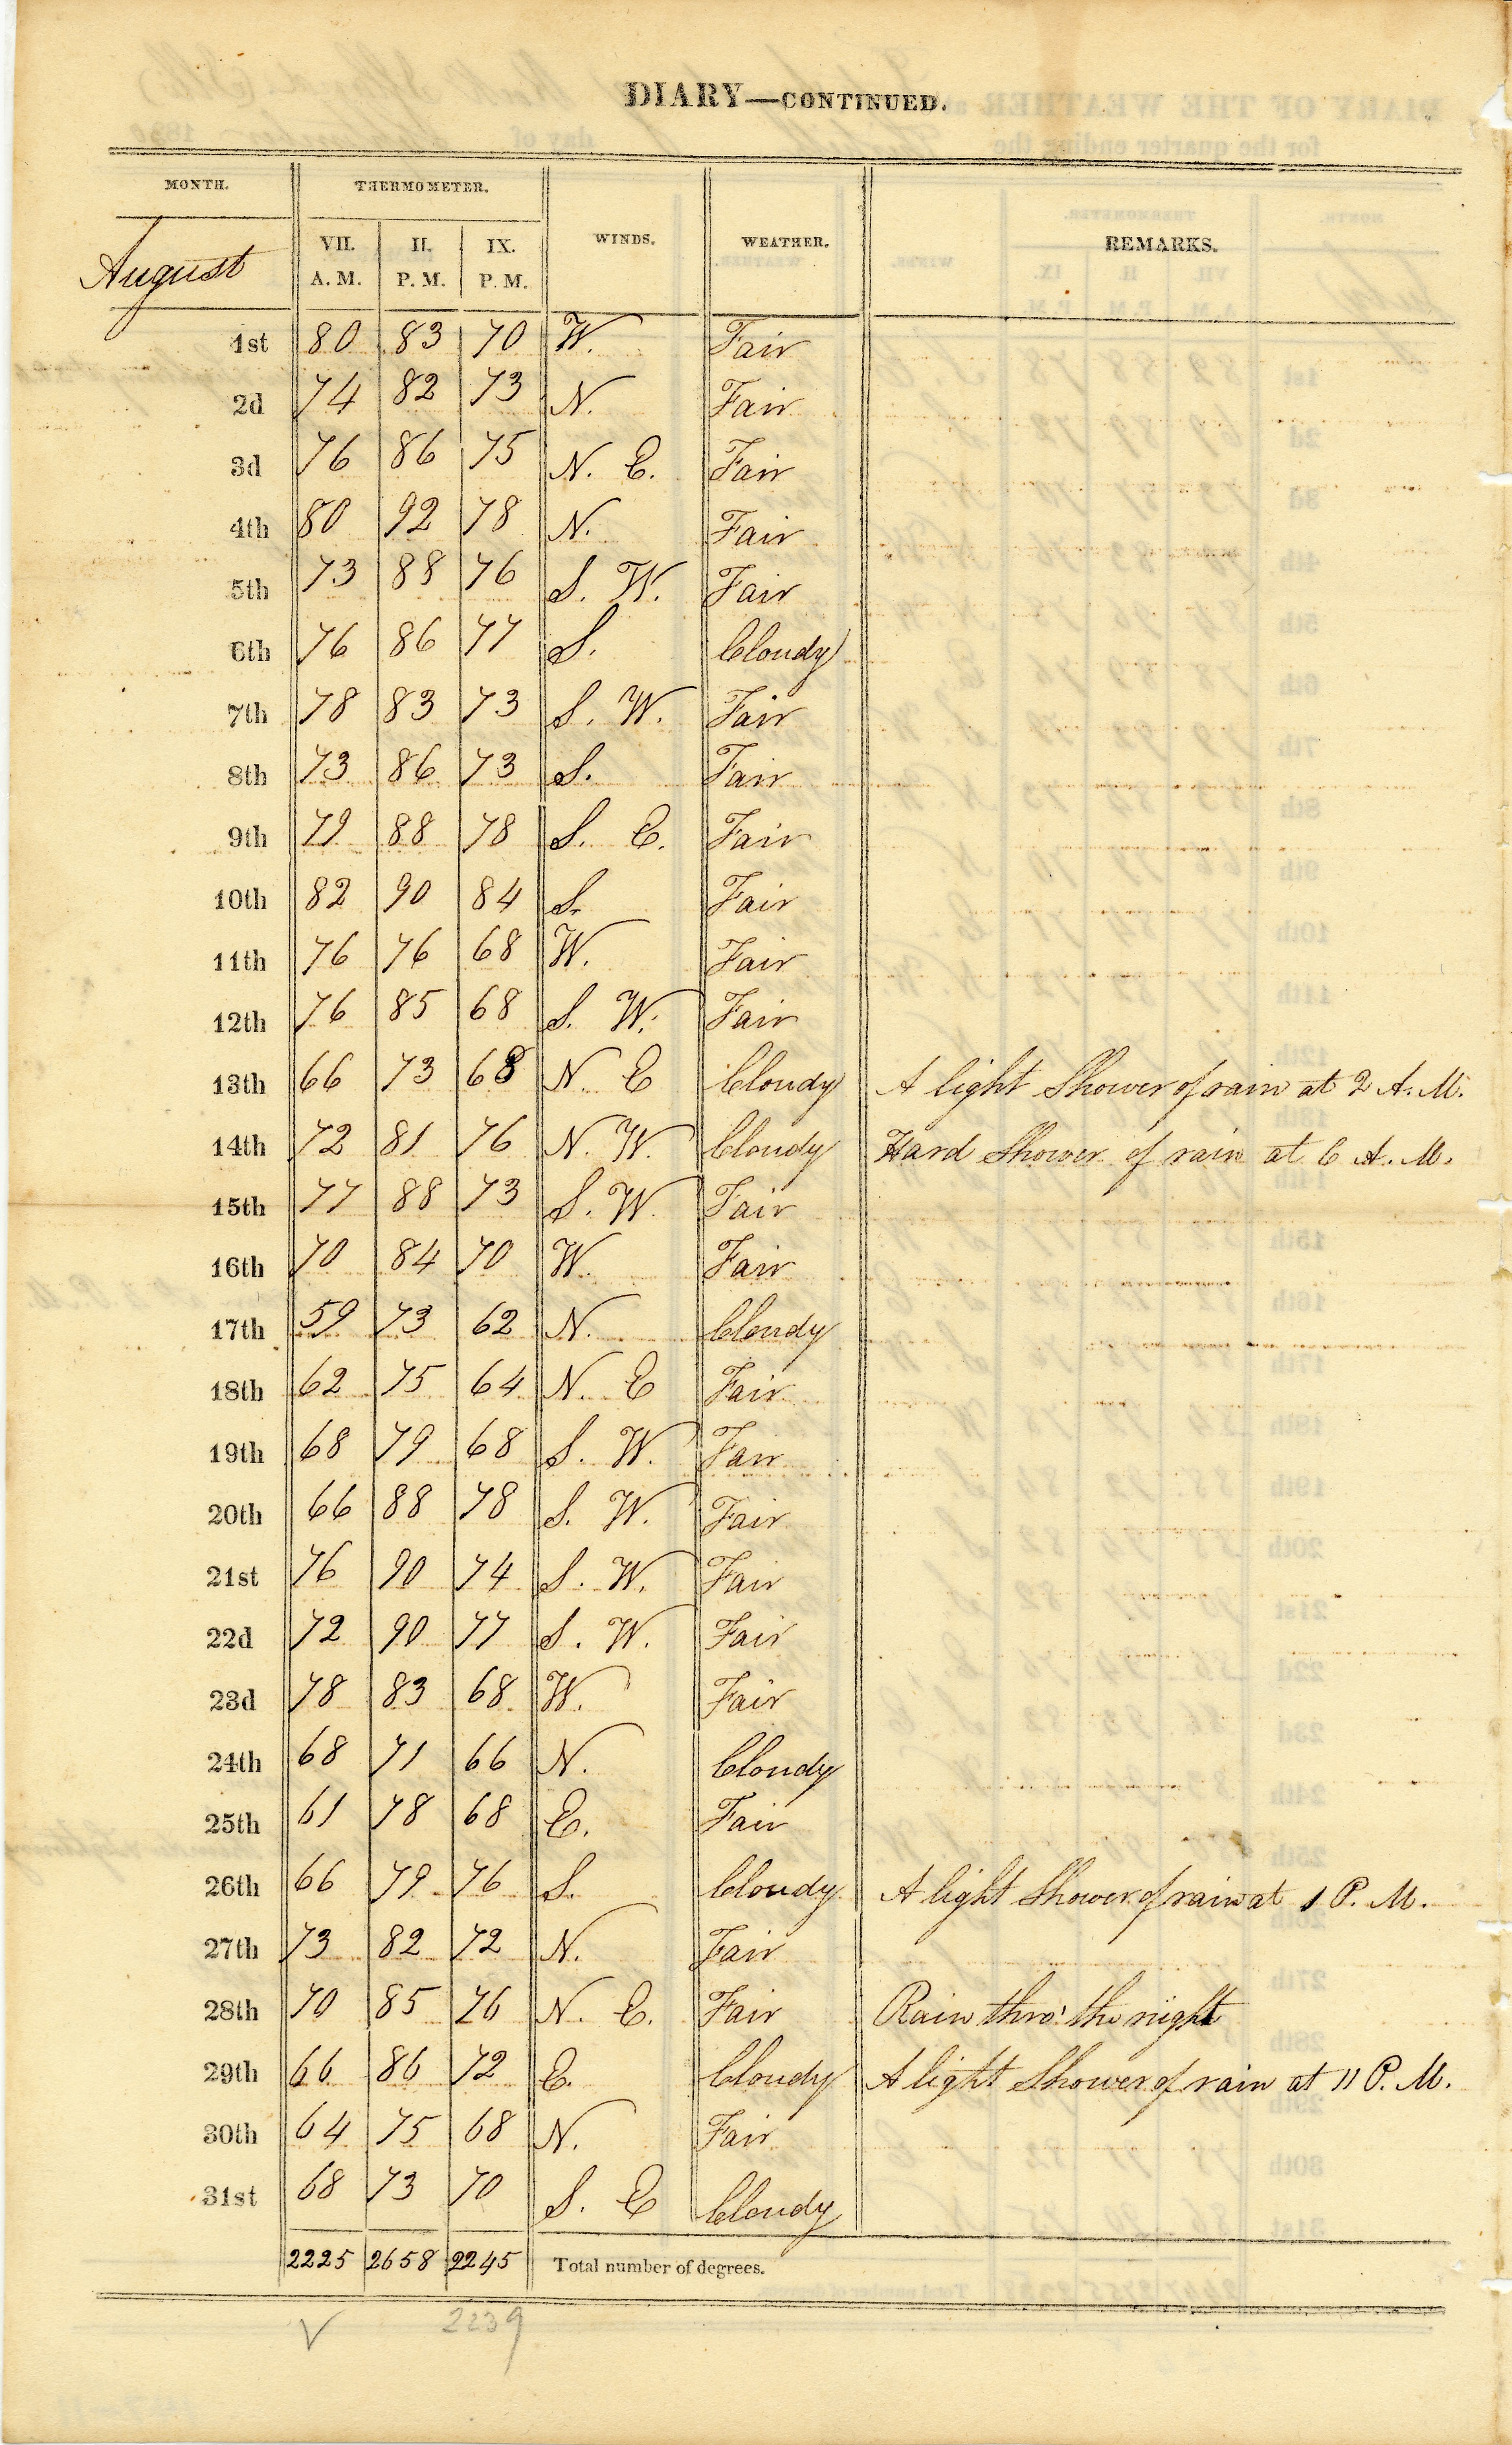 DIARY—CONTINUED.
MONTH. THERMOMETER. WINDS. WEATHER. REMARKS.
August VII. A.M. II. P.M. IX. P.M.
1st 80 83 70 W. Fair
2d 74 82 73 N. Fair
3d 76 86 75 N. E. Fair
4th 80 92 78 N. Fair
5th 73 88 76 S. W. Fair
6th 76 86 77 S. Cloudy
7th 78 83 73 S. W. Fair
8th 73 86 73 S. Fair
9th 79 88 78 S. E. Fair
10th 82 90 84 S. Fair
11th 76 76 68 W. Fair
12th 76 85 68 S. W. Fair
13th 66 73 68 N. E Cloudy A light Shower of rain at 2 A. M.
14th 72 81 76 N. W. Cloudy Hard Shower of rain at 6 A. M.
15th 77 88 73 S. W. Fair
16th 70 84 70 W. Fair
17th 59 73 62 N. Cloudy
18th 62 75 64 N. E Fair
19th 68 79 68 S. W. Fair
20th 66 88 78 S. W. Fair
21st 76 90 74 S. W. Fair
22d 72 90 77 S. W. Fair
23d 78 83 68 W. Fair
24th 68 71 66 N. Cloudy
25th 61 78 68 E. Fair
26th 66 79 76 S. Cloudy A light Shower of rain at 1 P. M.
27th 73 82 72 N. Fair
28th 70 85 76 N. E. Fair Rain thro' the night
29th 66 86 72 E. Cloudy A light Shower of rain at 11 P. M.
30th 64 75 68 N. Fair
31st 68 73 70 S. E Cloudy
2225 2658 2245 Total number of degrees.
2239